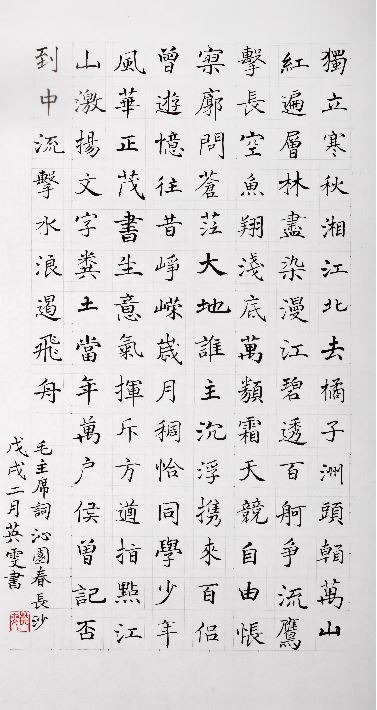 獨立寒秋湘江北去橘子洲頭看萬山
紅遍層林盡染漫江碧透百舸爭流鷹
擊長空魚翔淺底萬類霜天競自由悵
寥廓問蒼茫大地誰主沉浮携來百侶
曾遊憶往昔崢嶸歲月稠恰同學少年
風華正茂書生意氣揮斥方遒指點江
山激揚文字糞土當年萬户侯曾記否
到中流擊水浪遏飛舟
毛主席詞沁園春長沙
戊戌二月英雯書